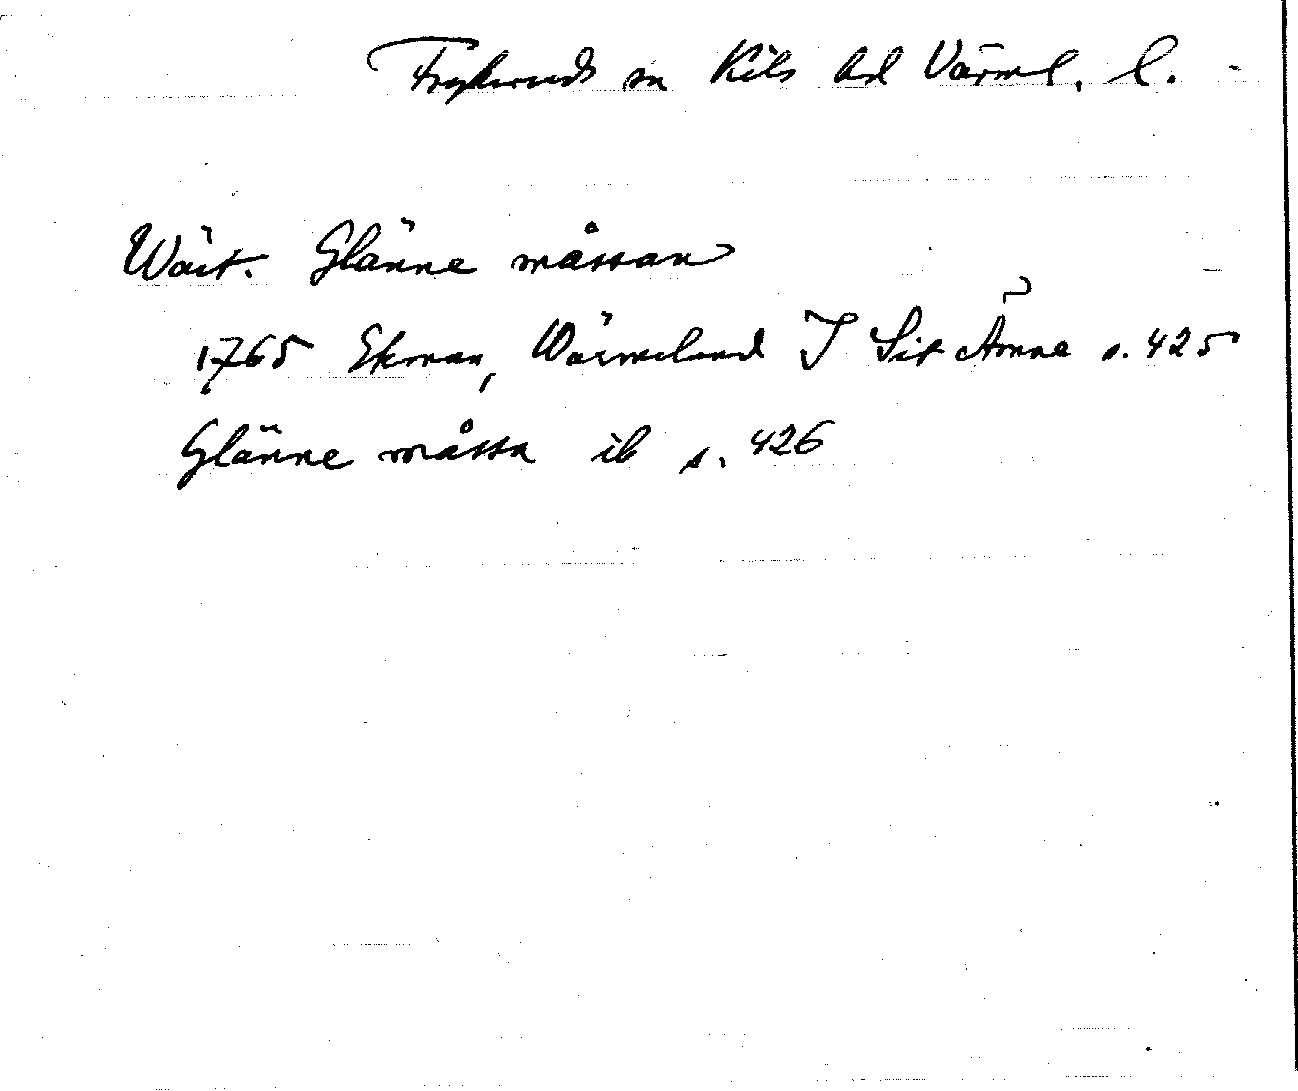 Frykeruds sn Kils hd Värml. l.
Wäst. Glänne måssan
1765 Ekman, Wärmeland I Sit Ämne s. 425
Glänne måssa ib s. 426